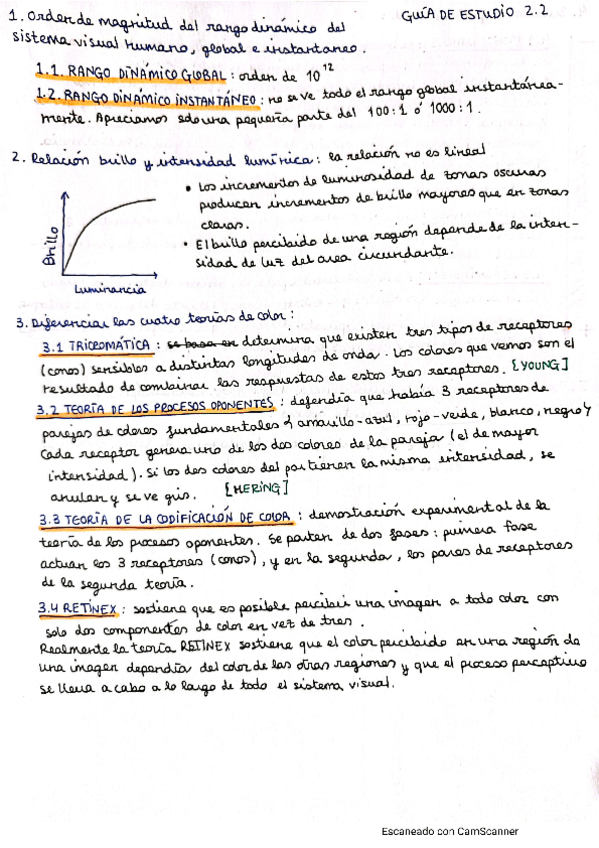 GUÍA DE ESTUDIO 2.2
1. Orden de magnitud del rango dinámico del
sistema visual humano, global e instantaneo.
1.1. RANGO DINÁMICO GLOBAL : orden de 10^12
1.2. RANGO DINÁMICO INSTANTÁNEO : no se ve todo el rango global instantánea-
mente. Apreciamos solo una pequeña parte del 100:1 ó 1000:1.
2. Relación brillo y intensidad lumínica : la relación no es lineal
• Los incrementos de luminosidad de zonas oscuras
producen incrementos de brillo mayores que en zonas
claras.
• El brillo percibido de una región depende de la inten-
sidad de luz del area circundante.
Brillo
Luminancia
3. Diferenciar las cuatro teorías de color :
3.1 TRICROMÁTICA : se basa en determina que existen tres tipos de receptores
(conos) sensibles a distintas longitudes de onda. Los colores que vemos son el
resultado de combinar las respuestas de estos tres receptores. [YOUNG]
3.2 TEORÍA DE LOS PROCESOS OPONENTES : defendía que había 3 receptores de
parejas de colores fundamentales { amarillo-azul, rojo-verde, blanco, negro }
Cada receptor genera uno de los dos colores de la pareja (el de mayor
intensidad). Si los dos colores del par tienen la misma intensidad, se
anulan y se ve gris. [HERING]
3.3 TEORÍA DE LA CODIFICACIÓN DE COLOR : demostración experimental de la
teoría de los procesos oponentes. Se parten de dos fases : primera fase
actúan los 3 receptores (conos), y en la segunda, los pares de receptores
de la segunda teoría.
3.4 RETINEX : sostiene que es posible percibir una imagen a todo color con
solo dos componentes de color en vez de tres.
Realmente la teoría RETINEX sostiene que el color percibido en una región de
una imagen dependía del color de las otras regiones y que el proceso perceptivo
se lleva a cabo a lo largo de todo el sistema visual.
Escaneado con CamScanner